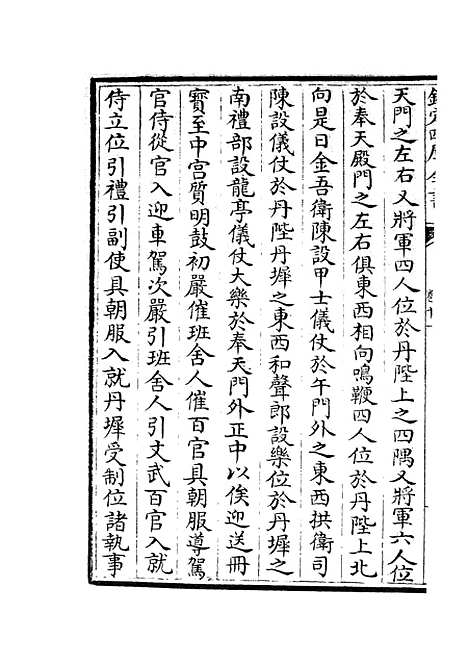 欽定四庫全書
天門之左右又將軍四人位於丹陛上之四隅又將軍六人位
於奉天殿門之左右俱東西相向鳴鞭四人位於丹陛上北
向是日金吾衛陳設甲士儀仗於午門外之東西拱衛司
陳設儀仗於丹陛丹墀之東西和聲郎設樂位於丹墀之
南禮部設龍亭儀仗大樂於奉天門外正中以俟迎送冊
寳至中宫質明鼓初嚴催班舍人催百官具朝服導駕
官侍從官入迎車駕次嚴引班舍人引文武百官入就
侍立位引禮引副使具朝服入就丹墀受制位諸執事